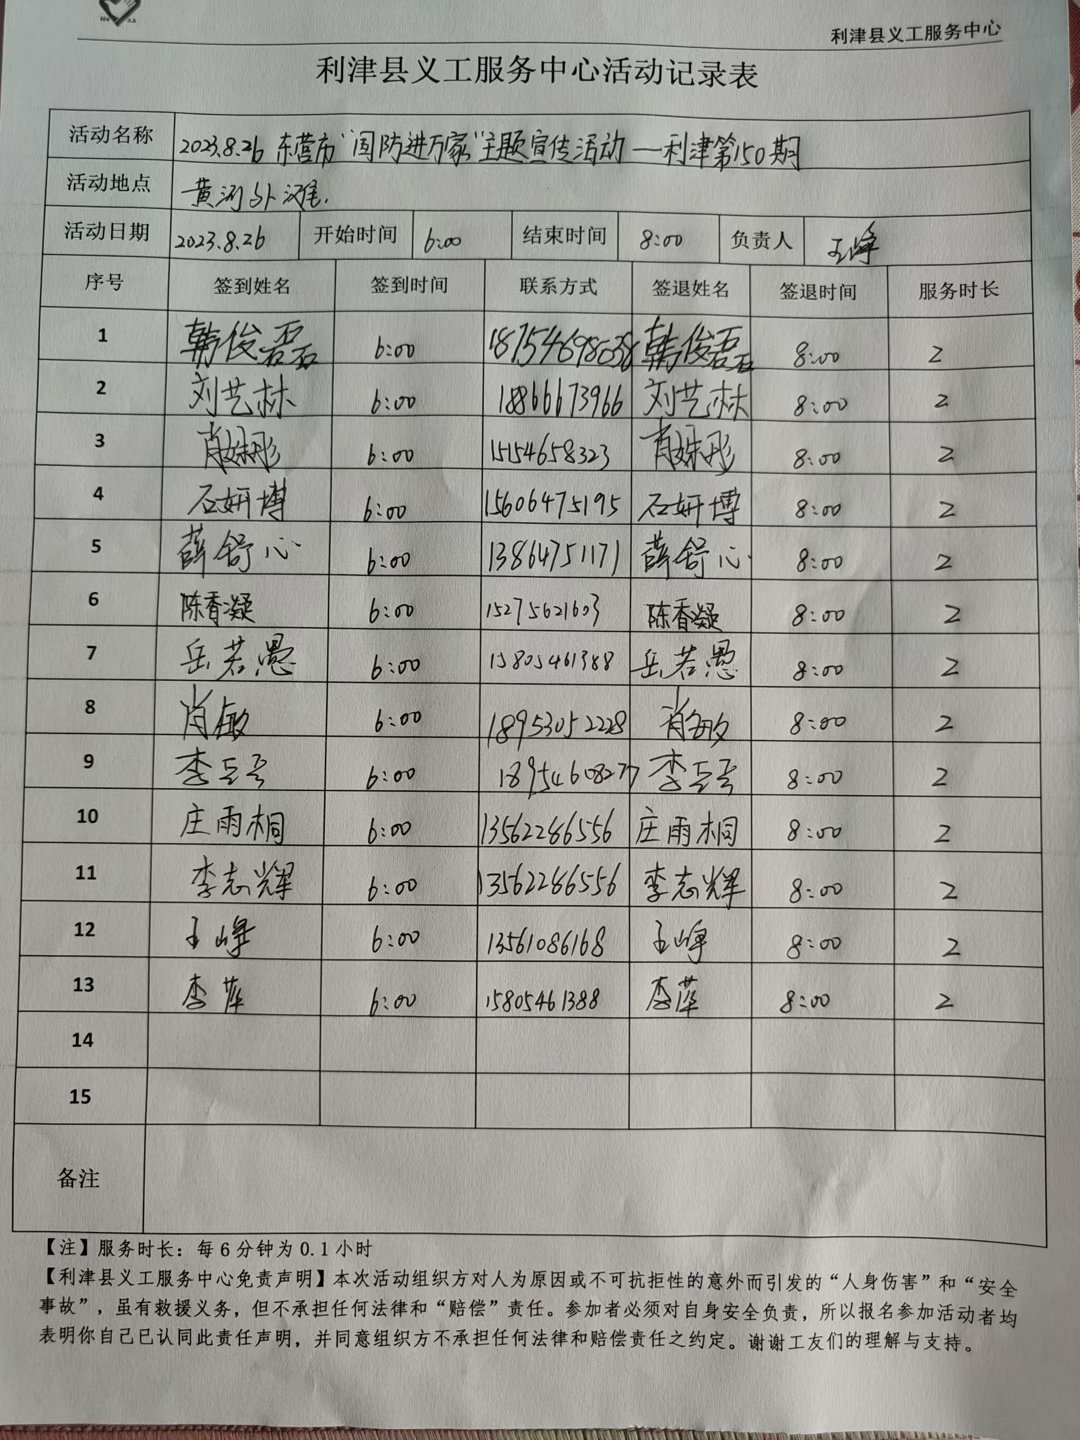 利津县义工服务中心
利津县义工服务中心活动记录表
活动名称 2023.8.26 东营市“国防进万家”主题宣传活动—利津第150期
活动地点 黄河外滩.
活动日期 2023.8.26 开始时间 6:00 结束时间 8:00 负责人 王峥
序号 签到姓名 签到时间 联系方式 签退姓名 签退时间 服务时长
1 韩俊磊 6:00 18754698038 韩俊磊 8:00 2
2 刘艺林 6:00 18866673966 刘艺林 8:00 2
3 肖姝彤 6:00 15154658323 肖姝彤 8:00 2
4 石妍博 6:00 15606475195 石妍博 8:00 2
5 薛舒心 6:00 13864751171 薛舒心 8:00 2
6 陈香凝 6:00 15275621603 陈香凝 8:00 2
7 岳若愚 6:00 15805461388 岳若愚 8:00 2
8 肖敏 6:00 18953052228 肖敏 8:00 2
9 李 6:00 18954608277 李 8:00 2
10 庄雨桐 6:00 13562286556 庄雨桐 8:00 2
11 李志辉 6:00 13562286556 李志辉 8:00 2
12 王峥 6:00 13561086168 王峥 8:00 2
13 李萍 6:00 15805461388 李萍 8:00 2
14
15
备注
【注】服务时长：每6分钟为0.1小时
【利津县义工服务中心免责声明】本次活动组织方对人为原因或不可抗拒性的意外而引发的“人身伤害”和“安全
事故”，虽有救援义务，但不承担任何法律和“赔偿”责任。参加者必须对自身安全负责，所以报名参加活动者均
表明你自己已认同此责任声明，并同意组织方不承担任何法律和赔偿责任之约定。谢谢工友们的理解与支持。